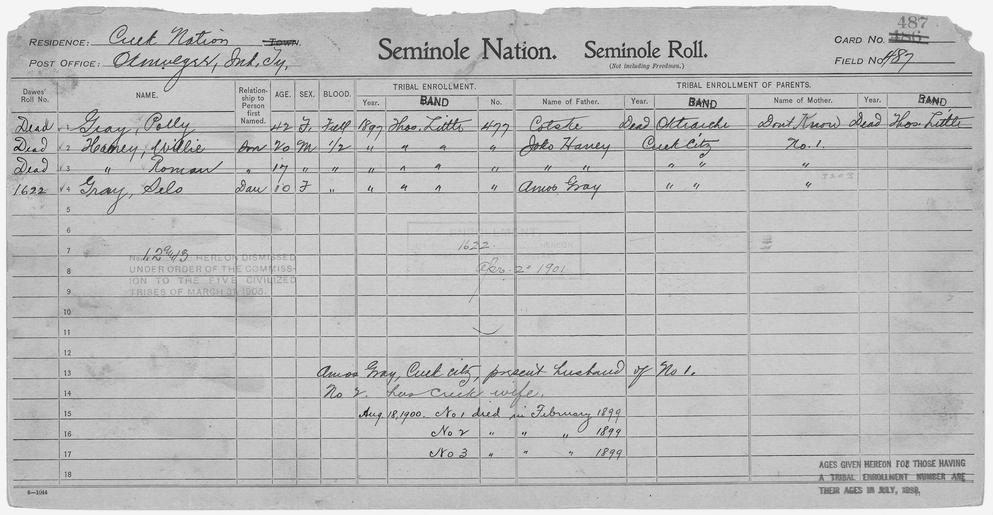 487
RESIDENCE: Creek Nation TOWN. Seminole Nation. Seminole Roll. CARD NO. 486
POST OFFICE: Ind. Ty. (Not including Freedmen.) FIELD NO. 487
Dawes' Roll No. NAME. Relationship to Person first Named. AGE. SEX. BLOOD. TRIBAL ENROLLMENT. TRIBAL ENROLLMENT OF PARENTS.
Year. BAND No. Name of Father. Year. BAND Name of Mother. Year. BAND
Dead 1 Gray, Polly 42 F. Full 1897 Thos. Little 477 Cotste Dead Don't Know Dead Thos. Little
Dead 2 Haney, Willie Son 20 M 1/2 " " " " Haney Creek Citz No. 1.
Dead 3 " Roman " 17 " " " " " " " " " " "
1622 4 Gray, Selo Dau 10 F " " " " " Amos Gray " " "
5
6
7 1622
No. 1, 2 & 3 HEREON DISMISSED
UNDER ORDER OF THE COMMISS-
8 Apr. 2 1901
ION TO THE FIVE CIVILIZED
9 TRIBES OF MARCH 31, 1905.
10
11
12
13 Amos Gray, Creek city, present husband of No 1.
14 No 2. has creek wife.
15 Aug. 18, 1900. No 1 died in February 1899
16 No 2 " " " 1899
17 No 3 " " " 1899
18
AGES GIVEN HEREON FOR THOSE HAVING
A TRIBAL ENROLLMENT NUMBER ARE
THEIR AGES IN JULY, 1898.
6—1044